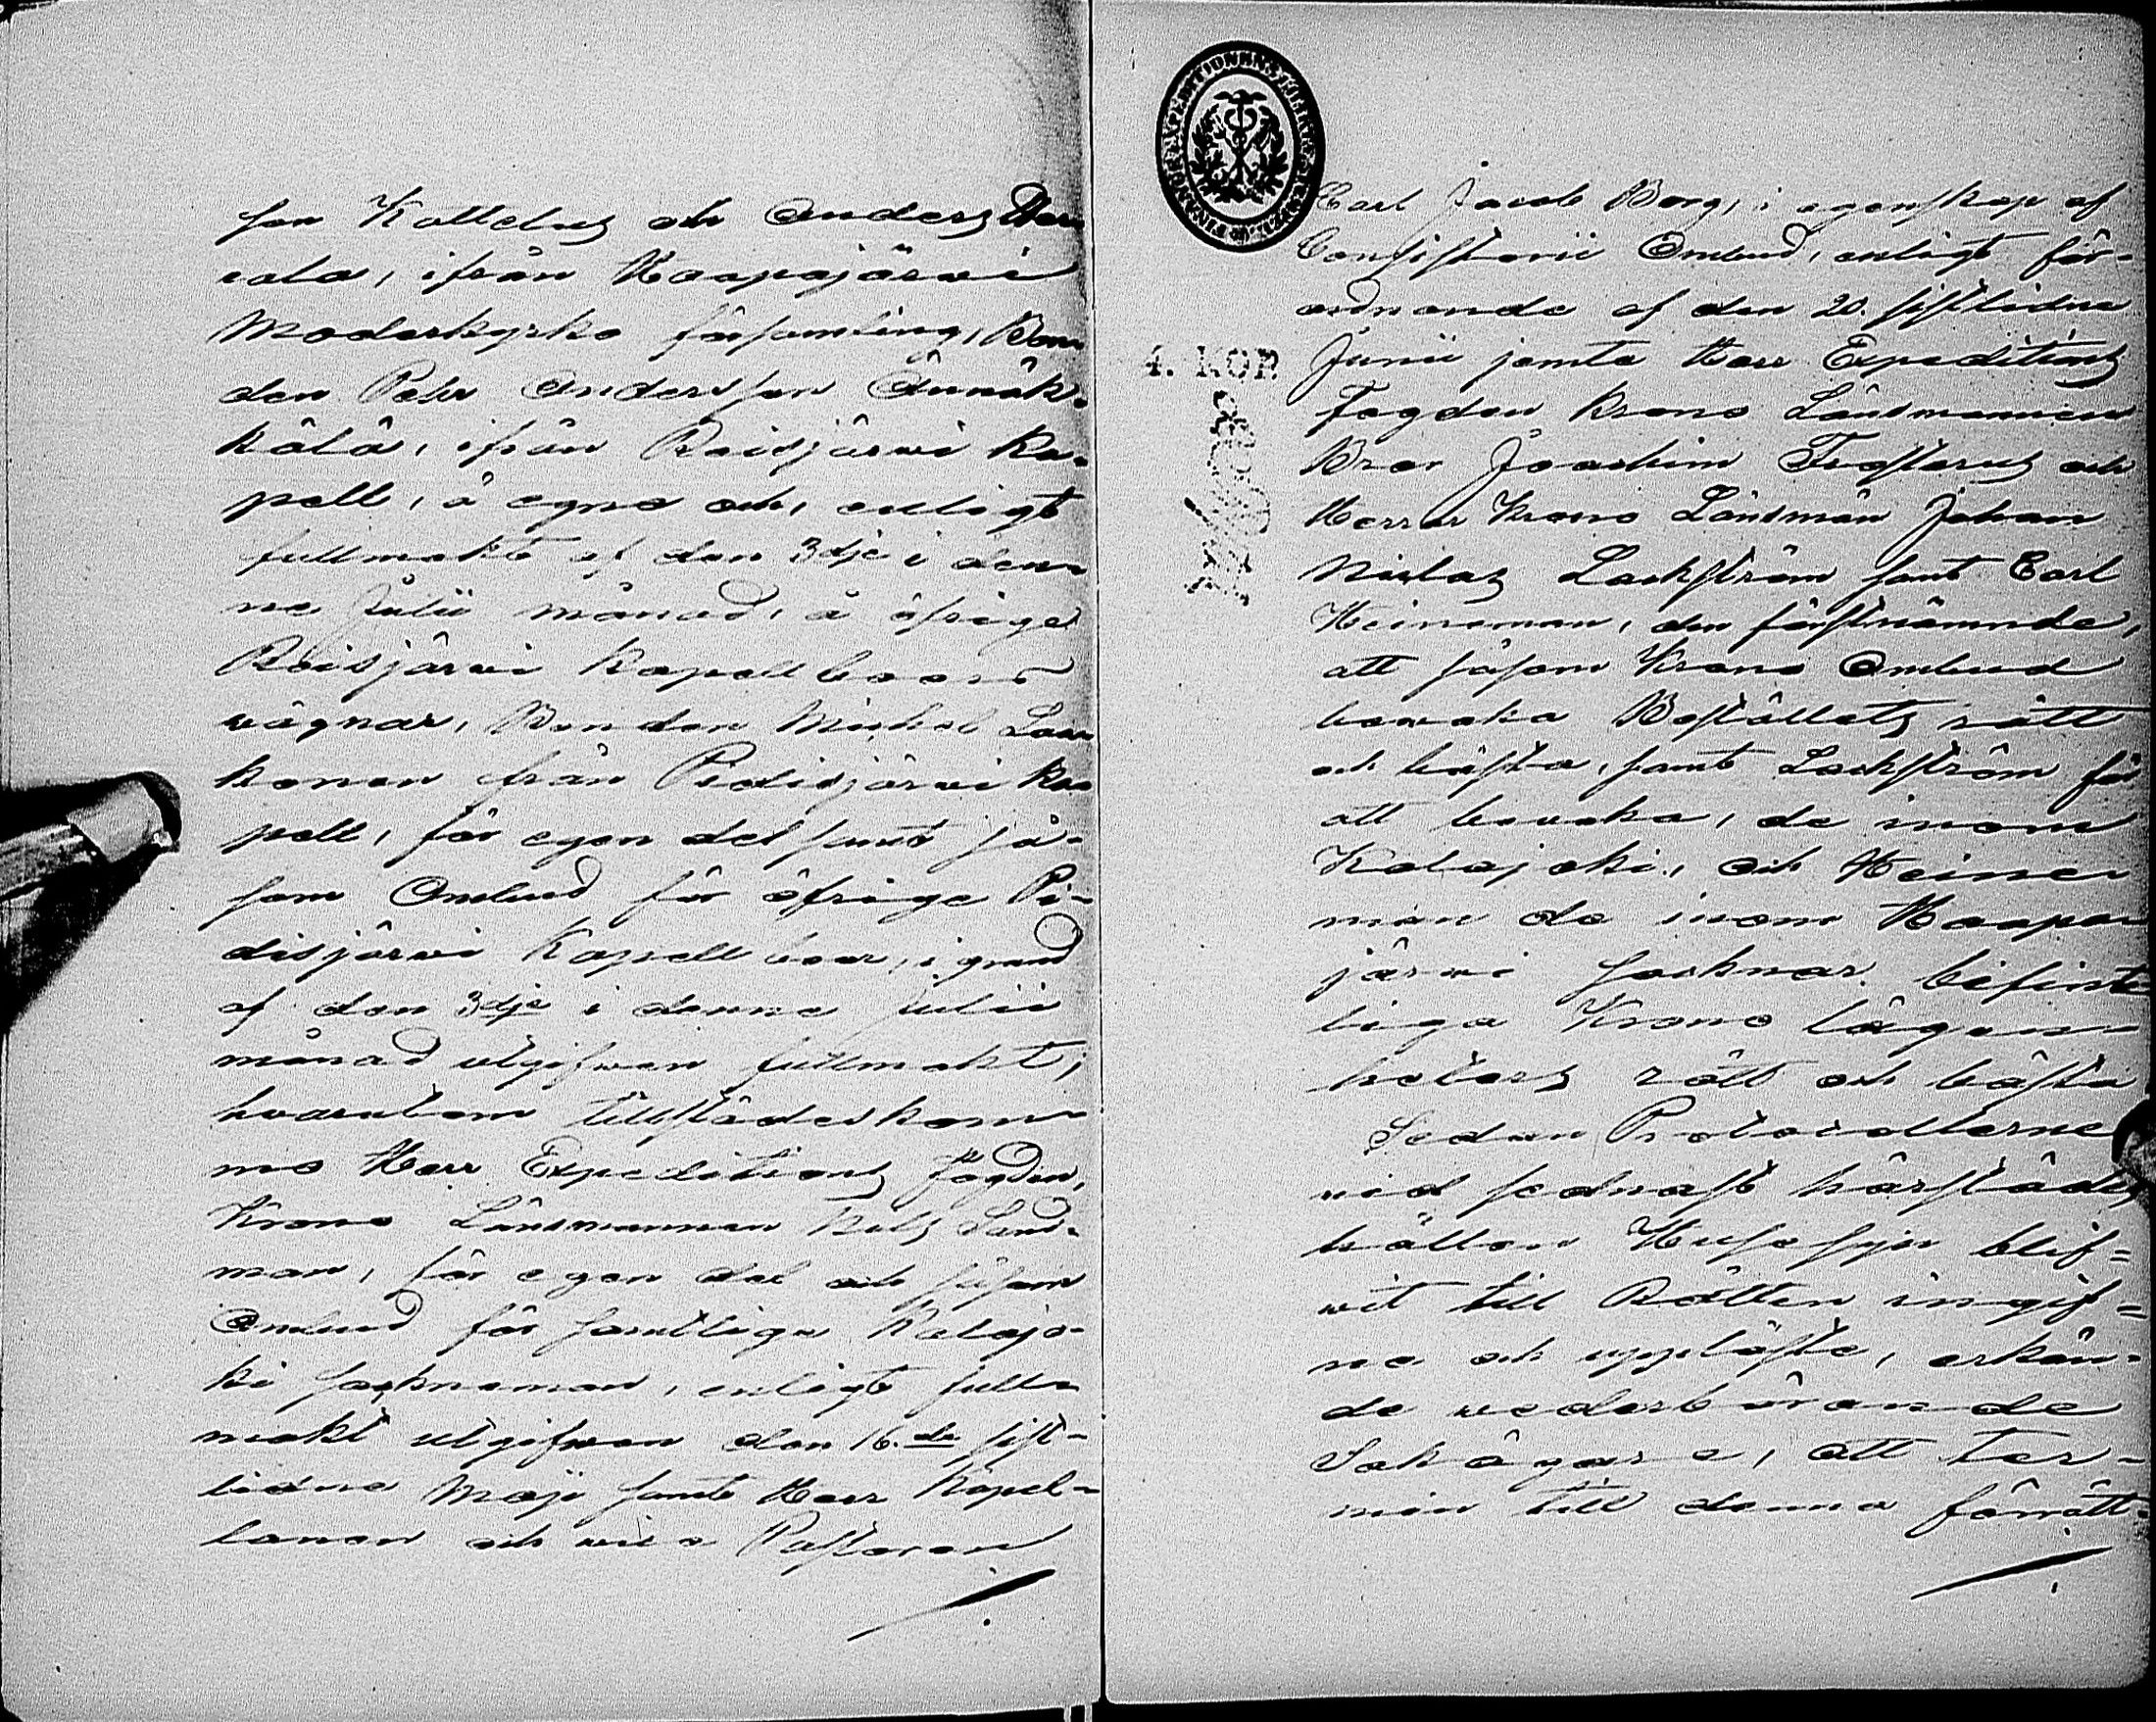 son Kattelus och Anders
vala, ifrån Haapajärwi
Moderkyrko församling, Bon-
den Pehr Andersson Annäk-
kälä, ifrån Reisjärwi Ka-
pell, å egne och, enligt
fullmakt af den 3dje i den-
ne Julii månad, å öfrige
Reisjärwi Kapellboers
wägnar, Bonden Michel Lau
konen från Pidisjärwi Ka
pell, för egen del samt så-
som Ombud för öfrige Pi-
disjärwi Kapellboer, i grund
af den 3dje i denne Julii
månad utgifwen fullmakt,
hvarutom tillstädeskom-
mo Herr Expeditions Fogden,
Krono Länsmannen Nils Sand-
man, för egen del och såsom
Ombud för samtlige Kalajo-
ki sockneman, enligt full-
makt utgifwen den 16.de sist-
lidne Maji samt Herr Kapel-
lanen och vice Pastoren
4. KOP.
Carl Jacob Borg, i egenskap af
Consistorii Ombud, enligt för-
ordnande af den 20. sistlidne
Junii jemte Herr Expeditions
Fogden Krono Länsmannen
Bror Joachim och
Herrar Krono Länsmän Johan
Niclas Lackström samt Carl
Heineman, den förstnämnde,
att såsom Krono Ombud
bewaka Boställets rätt
och bästa, samt Lackström för
att bewaka, de inom
Kalajoki, och Heine-
man de inom Haapa-
järwi socknar befint-
liga Krono lägen-
heters rätt och bästa
Sedan Protocollerne
vid sednast härstädes
hållen Husesyn blif-
wit till Rätten ingif-
ne och uppläste, erkän-
de wederbörande
Sakägare, att ter-
min till denna förrätt-